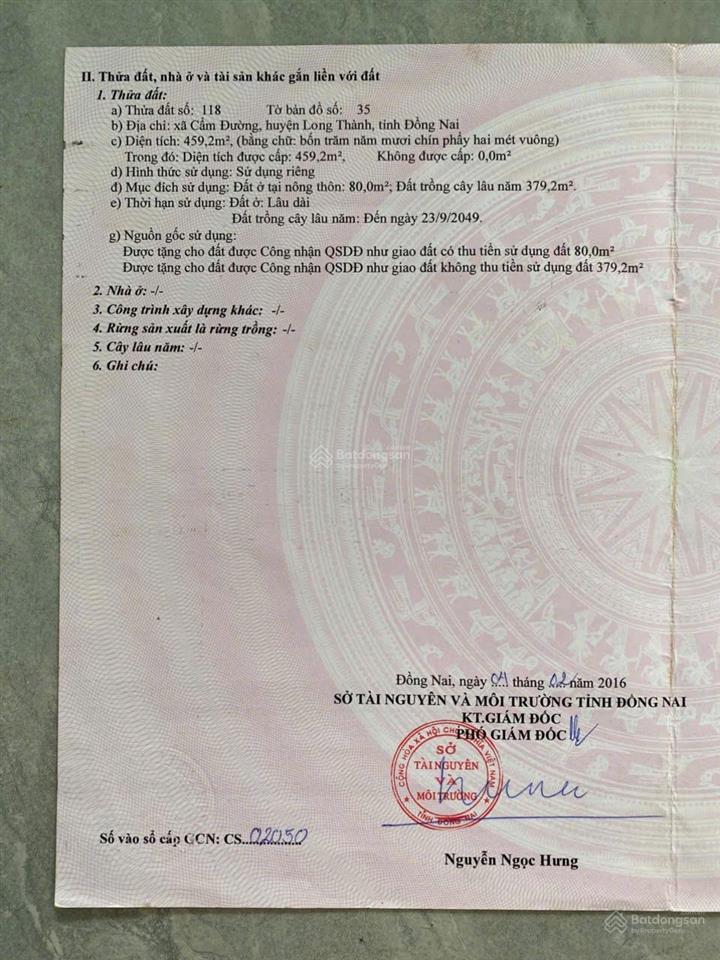 II. Thửa đất, nhà ở và tài sản khác gắn liền với đất
1. Thửa đất:
a) Thửa đất số: 118 Tờ bản đồ số: 35
b) Địa chỉ: xã Cẩm Đường, huyện Long Thành, tỉnh Đồng Nai
c) Diện tích: 459,2m², (bằng chữ: bốn trăm năm mươi chín phẩy hai mét vuông)
Trong đó: Diện tích được cấp: 459,2m², Không được cấp: 0,0m²
d) Hình thức sử dụng: Sử dụng riêng
đ) Mục đích sử dụng: Đất ở tại nông thôn: 80,0m²; Đất trồng cây lâu năm 379,2m².
e) Thời hạn sử dụng: Đất ở: Lâu dài
Đất trồng cây lâu năm: Đến ngày 23/9/2049.
g) Nguồn gốc sử dụng:
Được tặng cho đất được Công nhận QSDĐ như giao đất có thu tiền sử dụng đất 80,0m²
Được tặng cho đất được Công nhận QSDĐ như giao đất không thu tiền sử dụng đất 379,2m²
2. Nhà ở: -/-
3. Công trình xây dựng khác: -/-
4. Rừng sản xuất là rừng trồng: -/-
5. Cây lâu năm: -/-
6. Ghi chú:
Batdongsan
by PropertyGuru
Đồng Nai, ngày 04 tháng 02 năm 2016
SỞ TÀI NGUYÊN VÀ MÔI TRƯỜNG TỈNH ĐỒNG NAI
KT.GIÁM ĐỐC
PHÓ GIÁM ĐỐC
CỘNG HÒA XÃ HỘI CHỦ NGHĨA VIỆT NAM
SỞ
TÀI NGUYÊN
VÀ
MÔI TRƯỜNG
TỈNH ĐỒNG NAI
Số vào sổ cấp GCN: CS.02050
Nguyễn Ngọc Hưng
Batdongsan
by PropertyGuru